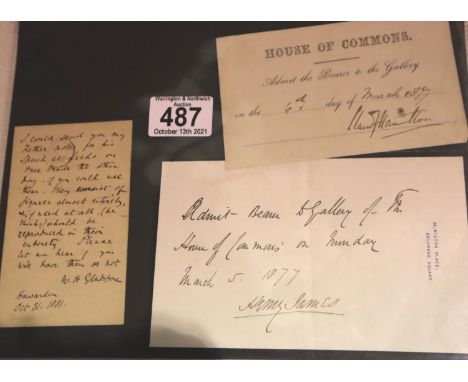 Warrington & Northwich
Auction
487
October 13th 2021
HOUSE OF COMMONS.
Admit the Bearer to the Gallery
on the 6th day of March 1877
Claud J Hamilton
I could send you my
Father's notes for his
speech at Leeds on
Free Trade the other
day, if you could use
them. They consist of
figures almost entirely,
& if used at all (he
thinks) should be
reproduced in their
entirety. Please
let me hear if you
will have them or not
W. H. Gladstone
Hawarden
Oct 31. 1881.
Admit Bearer to Gallery of The
House of Commons on Monday
March 5. 1877
Henry James
WILTON PLACE,
BELGRAVE SQUARE.